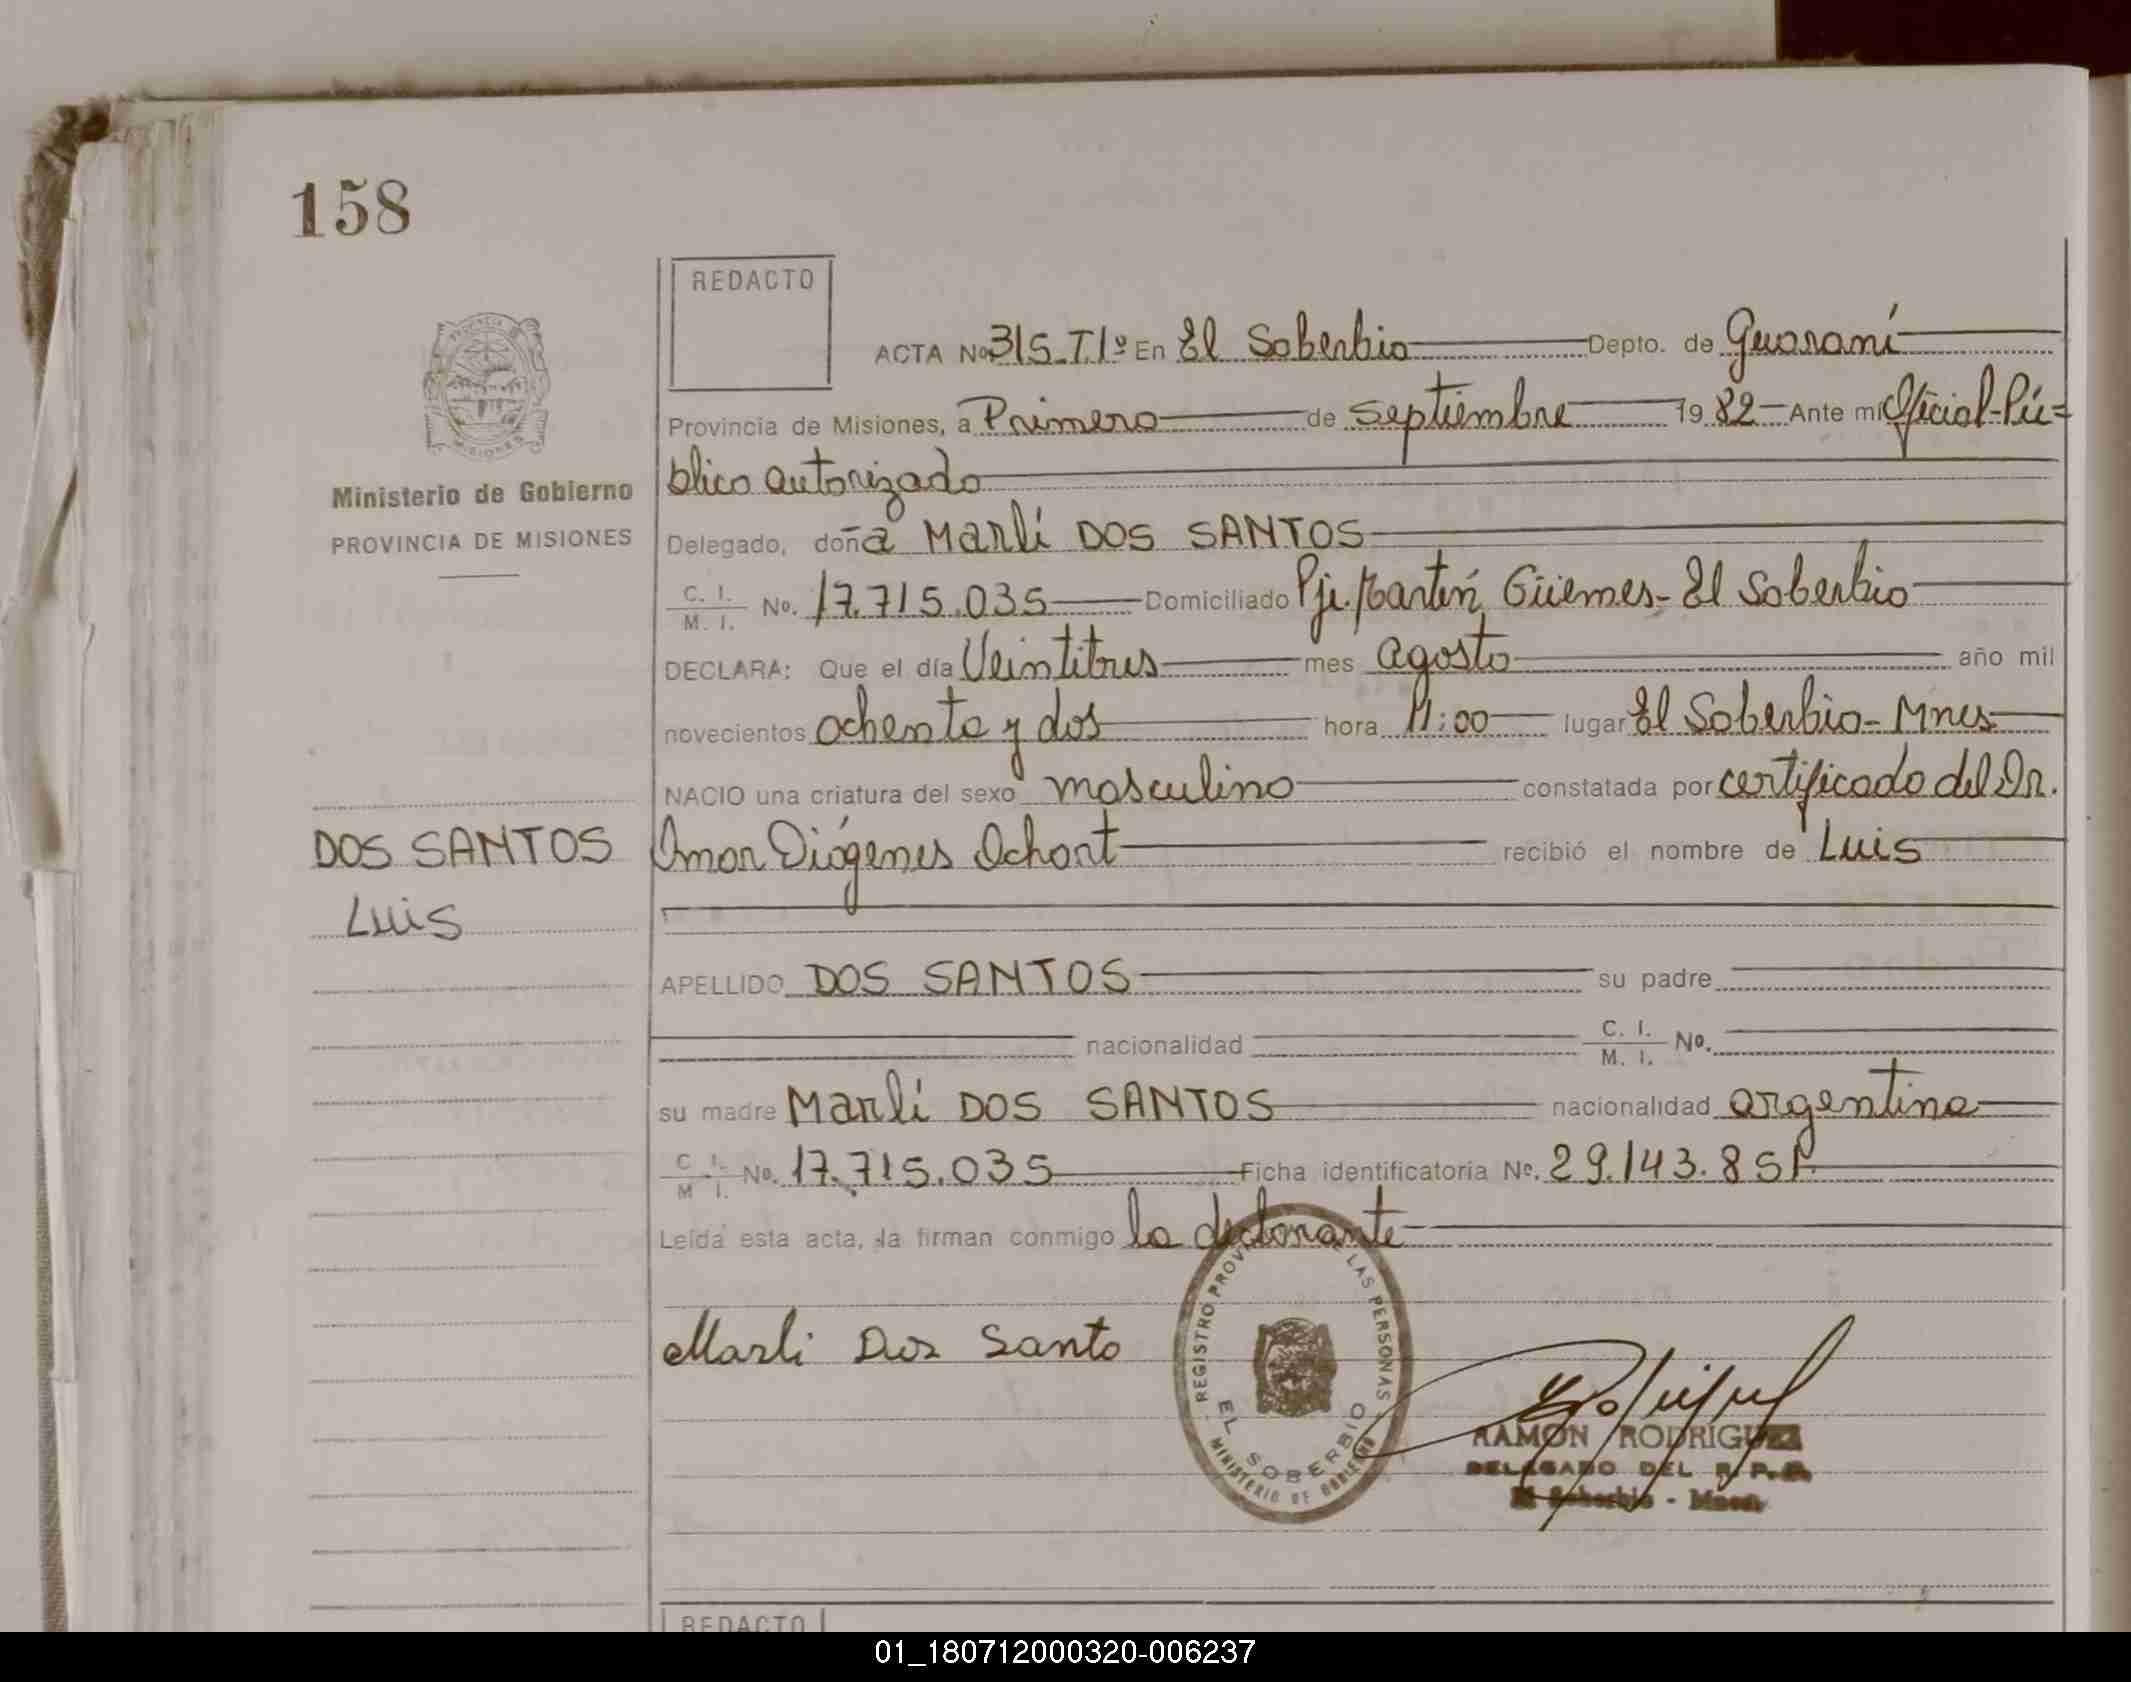 158
REDACTO
ACTA No 315.T.1º En El Soberbio Depto. de Guaraní
Provincia de Misiones, a Primero de Septiembre 1982 Ante mi Oficial-Pú-
blico autorizado
Ministerio de Gobierno
PROVINCIA DE MISIONES
Delegado, doña Marlí DOS SANTOS
C. I. M. I. No. 17.715.035 Domiciliado Pje. Martín Güemes - El Soberbio
DECLARA: Que el día Veintitres mes agosto año mil
novecientos ochenta y dos hora 11:00 lugar El Soberbio - Mnes
NACIO una criatura del sexo masculino constatada por certificado del Dr.
Omar Diógenes Ochort recibió el nombre de Luis
DOS SANTOS
Luis
APELLIDO DOS SANTOS su padre
nacionalidad C. I. M. I. Nº.
su madre Marlí DOS SANTOS nacionalidad argentina
C. I. M. I. No. 17.715.035 Ficha identificatoria Nº. 29.143.851
Leída esta acta, la firman conmigo la declarante
Marli Dos Santo
REGISTRO PROV LAS PERSONAS
EL SOBERBIO
MINISTERIO DE GOBIERNO
RAMON RODRIGUEZ
DELEGADO DEL R. P. P.
El Soberbio - Mnes.
REDACTO
01_180712000320-006237